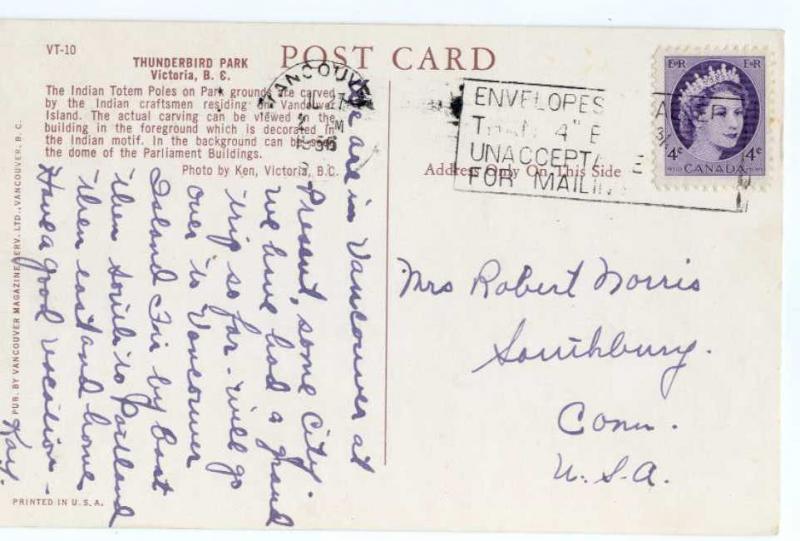 VT-10
THUNDERBIRD PARK
Victoria, B. C.
The Indian Totem Poles on Park grounds are carved
by the Indian craftsmen residing on Vancouver
Island. The actual carving can be viewed in the
building in the foreground which is decorated in
the Indian motif. In the background can be seen
the dome of the Parliament Buildings.
Photo by Ken, Victoria, B.C.
POST CARD
Address Only On This Side
VANCOUVER
ENVELOPES
4"
FOR
E R E R
4c 4c
CANADA
We are in Vancouver at
Present, some City.
we have had a grand
trip so far - will go
over to Vancouver
Island Fri by boat
then south to Portland
then east and home
Have a good vacation -
Kay.
Mrs Robert Norris
Southbury.
Conn.
U.S.A.
PUB. BY VANCOUVER MAGAZINE SERV. LTD., VANCOUVER, B. C.
PRINTED IN U. S. A.